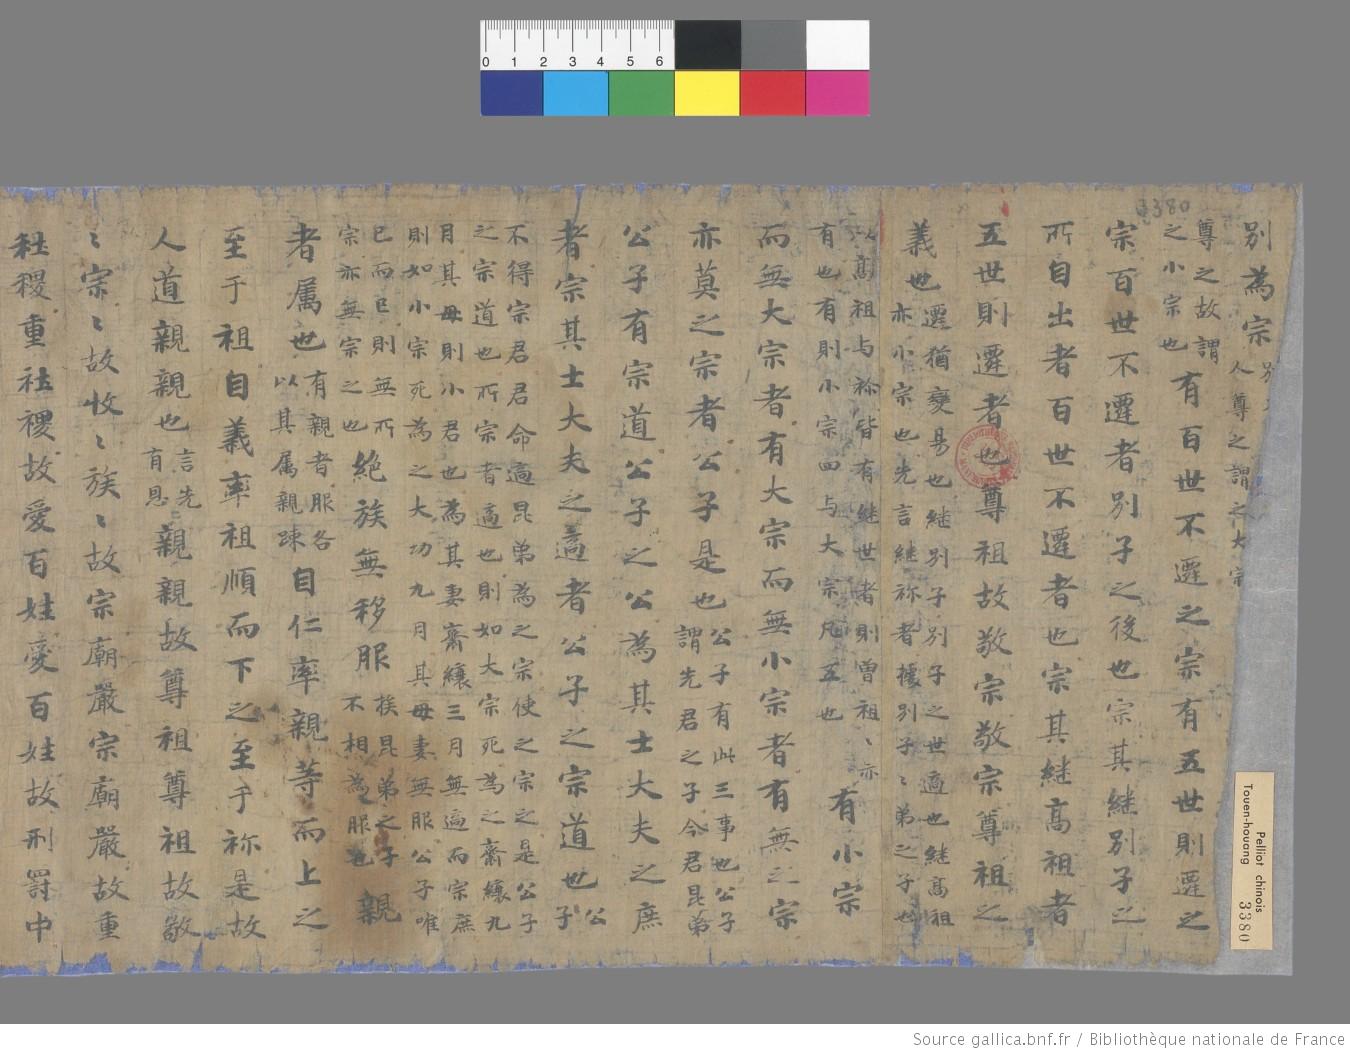 3380
別為宗別人尊之謂之大宗
尊之故謂之小宗也有百世不遷之宗有五世則遷之
宗百世不遷者別子之後也宗其継別子之
所自出者百世不遷者也宗其継髙祖者
五世則遷者也尊祖故敬宗敬宗尊祖之
義也遷猶變易也継別子別子之世適也継髙祖亦小宗也先言継祢者據別子〻弟之子也
以髙祖与祢皆有継世者則曽祖〻亦有也有則小宗四与大宗凡五也有小宗
而無大宗者有大宗而無小宗者有無之宗
亦莫之宗者公子是也公子有此三事也公子謂先君之子今君昆弟
公子有宗道公子之公為其士大夫之庶
者宗其士大夫之適者公子之宗道也公子
不得宗君君命適昆弟為之宗使之宗之是公子
之宗道也所宗者適也則如大宗死為之齋縗九
月其母則小君也為其妻齋縗三月無適而宗庶
則如小宗死為之大功九月其母妻無服公子唯
已而已則無所宗亦無宗之也絶族無移服挨昆弟之子不相為服也親
者属也有親者服各以其属親疎自仁率親等而上之
至于祖自義率祖順而下之至于祢是故
人道親親也言先有恩親親故尊祖尊祖故敬
〻宗〻故收〻族〻故宗廟嚴宗廟嚴故重
社稷重社稷故愛百姓愛百姓故刑罰中
Pelliot chinois
Touen-houang 3380
0 1 2 3 4 5 6
Source gallica.bnf.fr / Bibliothèque nationale de France